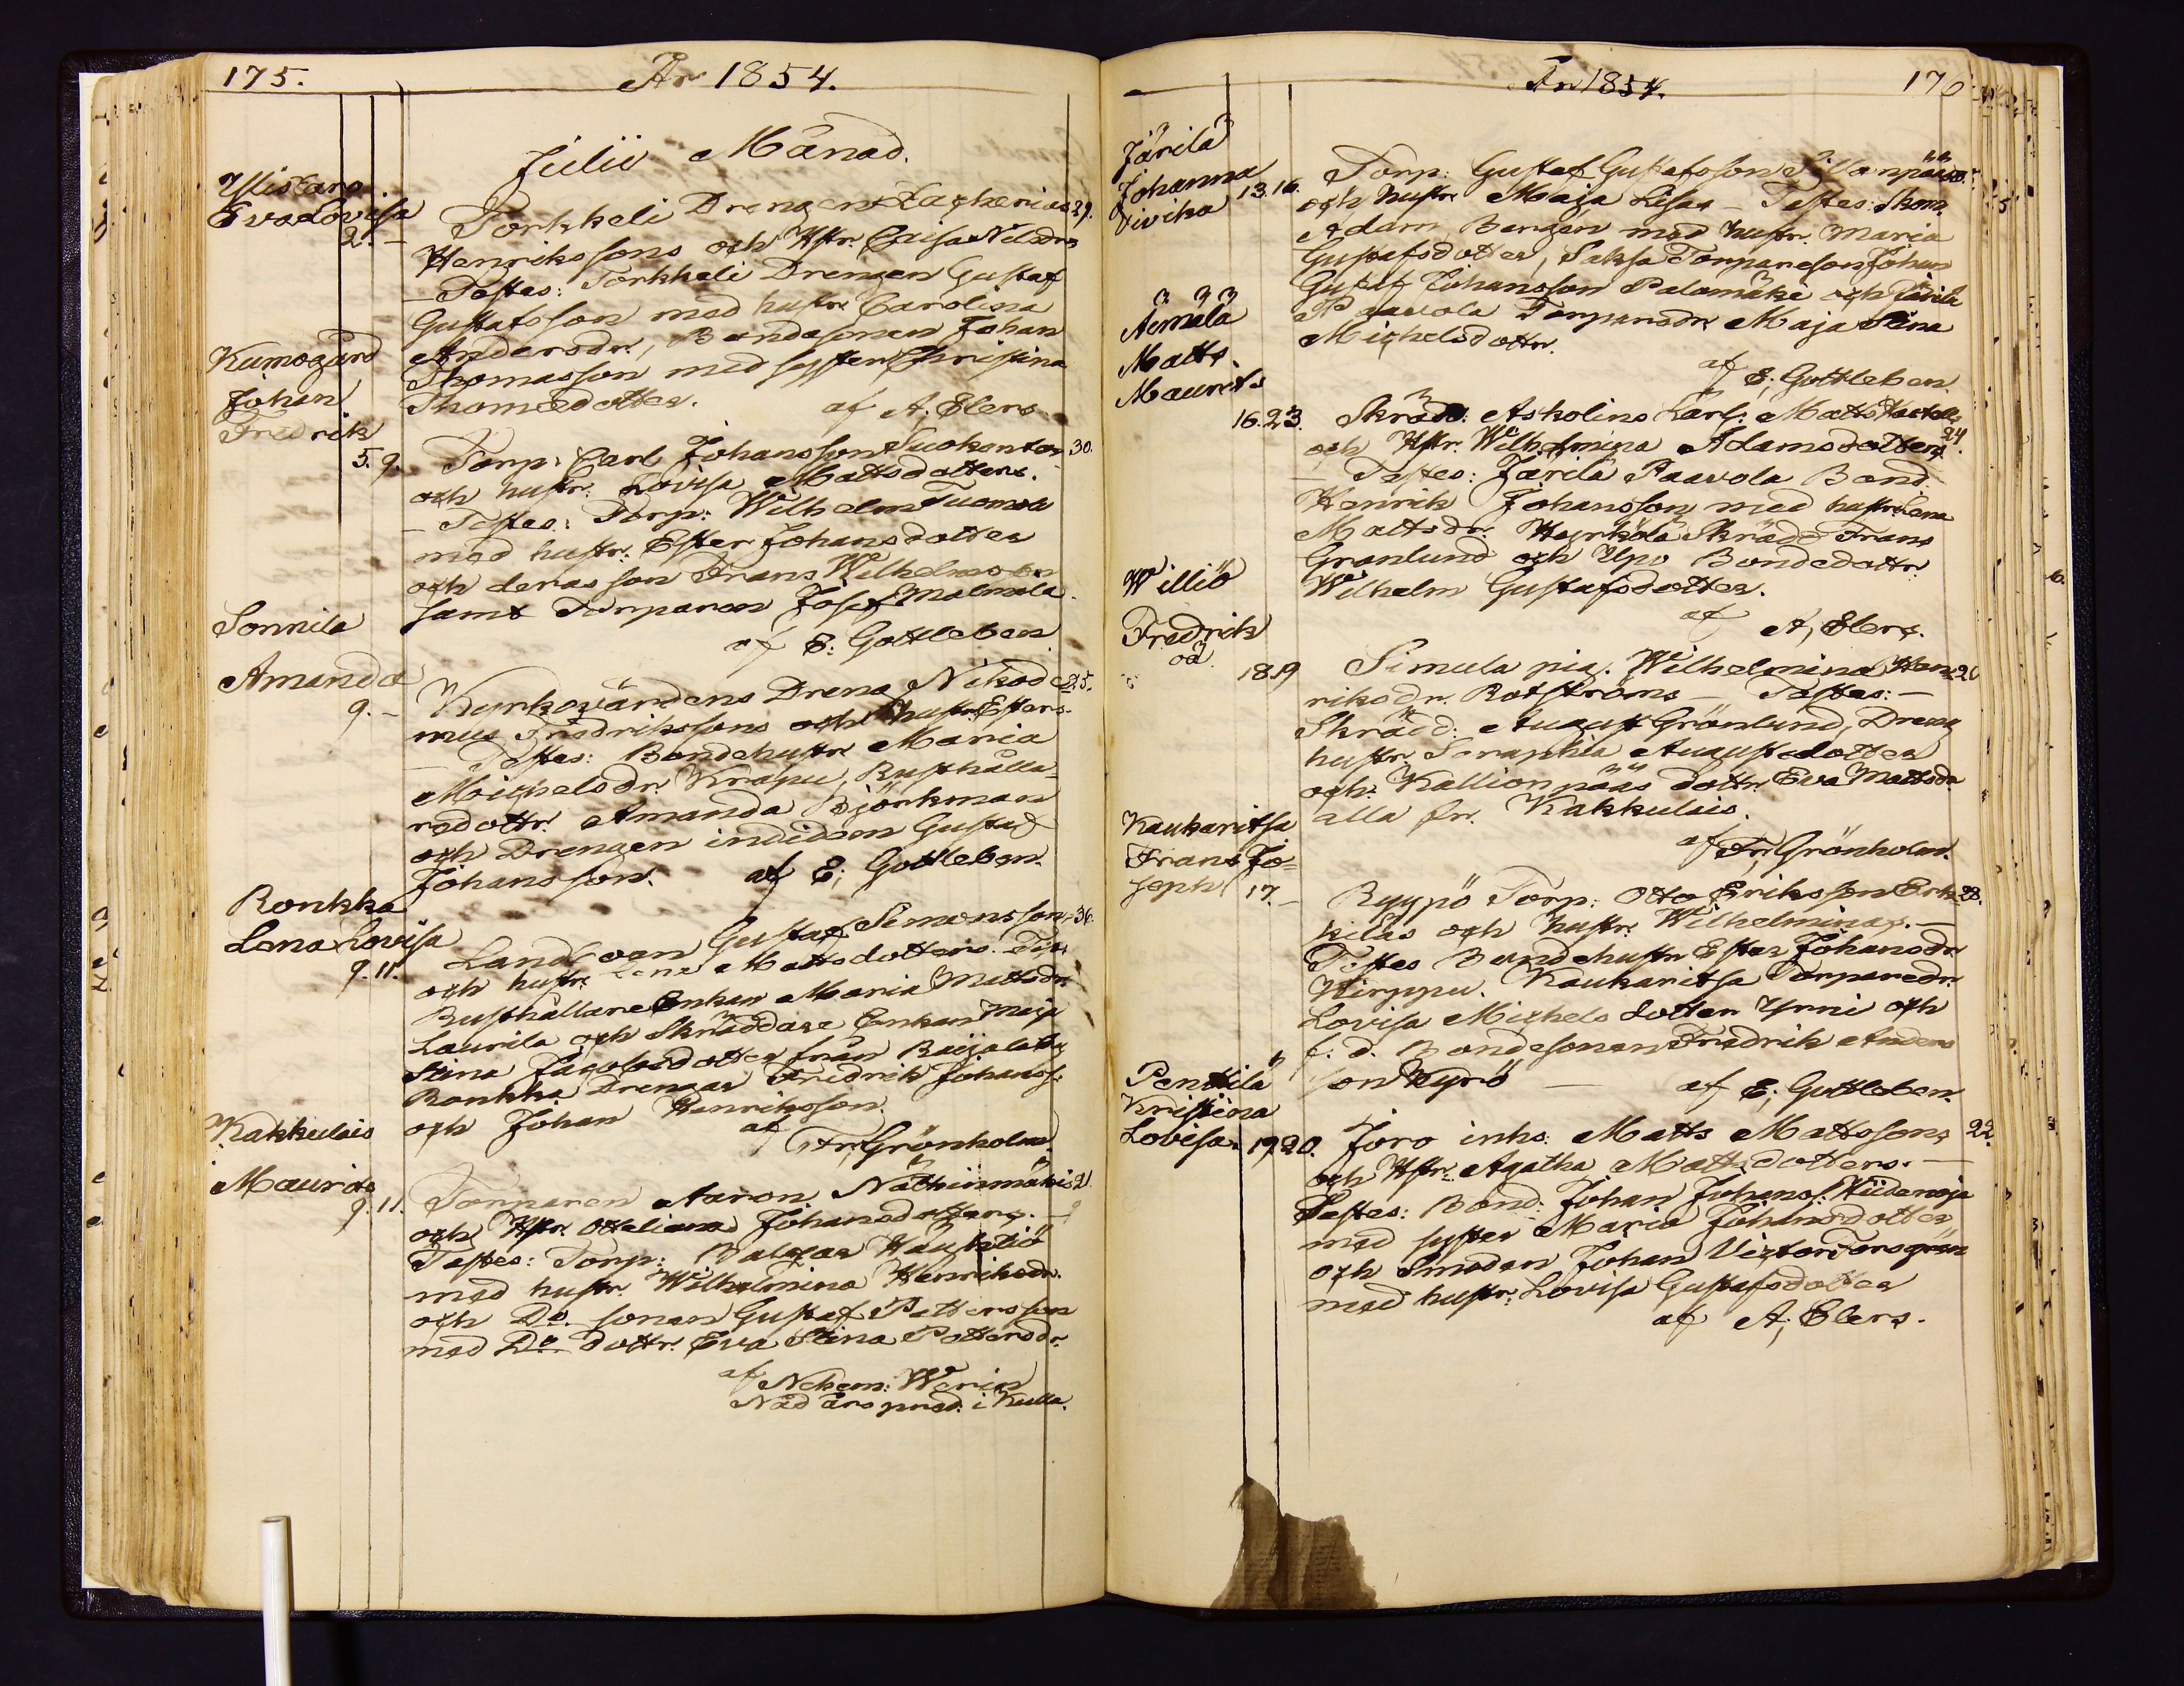 175.
År 1854.
Julii Månad.
Ylistaro
Eva Lovisa
2. –
Torkkeli Drengen Zacharias 29.
Henrikssons och Hstr. Caisa Nilsdrs
– Testes: Torkkeli Drengen Gustaf
Gustafsson med hustr. Carolina
Andersdr., Bondesonen Johan
Thomasson med syster Christina
Thomædotter.
af A. Elers.
Kumogård
Johan
Fredrik
5. 9.
Torp. Carl Johansson Suokanton 30.
och hustr. Lovisa Mattsdotters.
– Testes: Torp: Wilhelm Tuomola
med hustr. Ester Johansdotter
och deras son Frans Wilhelmsson
samt Torparen Josef Malmala.
af E: Gottleben
Sonnila
Amanda
9. –
Kyrkovärdens Dreng Nikode- 25.
mus Fredrikssons och hustr. Esters.
– Testes: Bondehustr. Maria
Michelsdr. Krapu, Rusthålla-
redottr. Amanda Björkman
och Drengen indidem Gustaf
Johansson.
af E; Gottleben.
Ronkka
Lena Lovisa
9. 11.
Landboen Gustaf Simonsson 36.
och hustr. Lena Mattsdotters. Test.
Rusthållare Enkan Maria Mattsdr.
Laurila och Skräddare Enkan Maja
Stina Jacobsdotter från Raijala by
Ronkka Drengar Fredrik Johanss:
och Johan Henriksson.
af Fr. Grönholm.
Kakkulais
Maurits
9. 11.
Torparen Aaron Näthinmäkis 21
och Hstr. Ottiliana Johansdotters. –
Testes: Torp: Baltzar Haukitiö
med hustr. Wilhelmina Henriksdr.
och Do. sonen Gustaf Pettersson
med Do. dottr. Eva Stina Pettersdr.
af Nekem: Werin
Nådårs pred. i Kulla.
År 1854.
176
Järilä
Johanna
Vivika
13. 16.
Torp: Gustaf Gustafsson Sillanpääs
och hustr. Maja Lisas – Testes: Skom.
Adam Bergen med hustr. Maria
Gustafsdotter, Saksa Torpareson Johan
Gustaf Johansson Palomäki och Järilä
Paavola Torparedr. Maja Stina
Michelsdottr.
af E; Gottleben
Äemälä
Matts
Maurits
16. 23.
Skrädd: Askolins Lärl: Matts
och Hstr. Wilhelmina Adamsdotters 24.
– Testes: Järilä Paavola Bond.
Henrik Johansson med hustr. Lena
Mattsdr. Hyrkölä Skrädd Frans
Granlund och Ypo Bondedottr.
Wilhelm Gustafsdotter.
af A; Elers.
Williö
Fredrik
oä
18. 19
Simula pig. Wilhelmina Hen- 20
riksdr. Rotströms – Testes: –
Skrädd: August Grönlund, Dreng
hustr. Seraphia Augustsdotter
och Kallionpääs dottr. Eva Mattsdr
alla fr. Kakkulais.
af Fr. Grönholm.
Kaukaritsa
Frans Jo=
seph 17. –
Ryypö Torp: Otto Eriksson Erk- 28.
kiläs och hustr. Wilhelminas. –
Testes Bondehustr. Ester Johansdr.
Wirppu. Kaukaritsa Torparedr.
Lovisa Michels dotter Yrni och
f. d. Bondesonen Fredrik Anders
son Kyrö –
af E; Gottleben.
Penttilä
Kristina
Lovisa 19. 20.
Joro inhs. Matts Mattssons 22.
och Hstr. Agatha Mattsdotters. –
Testes: Bond: Johan Johanss: Hiidenoja
med syster Maria Johansdotter
och Smeden Johan Victor Forsgren
med hustr: Lovisa Gustafsdotter
af A; Elers.